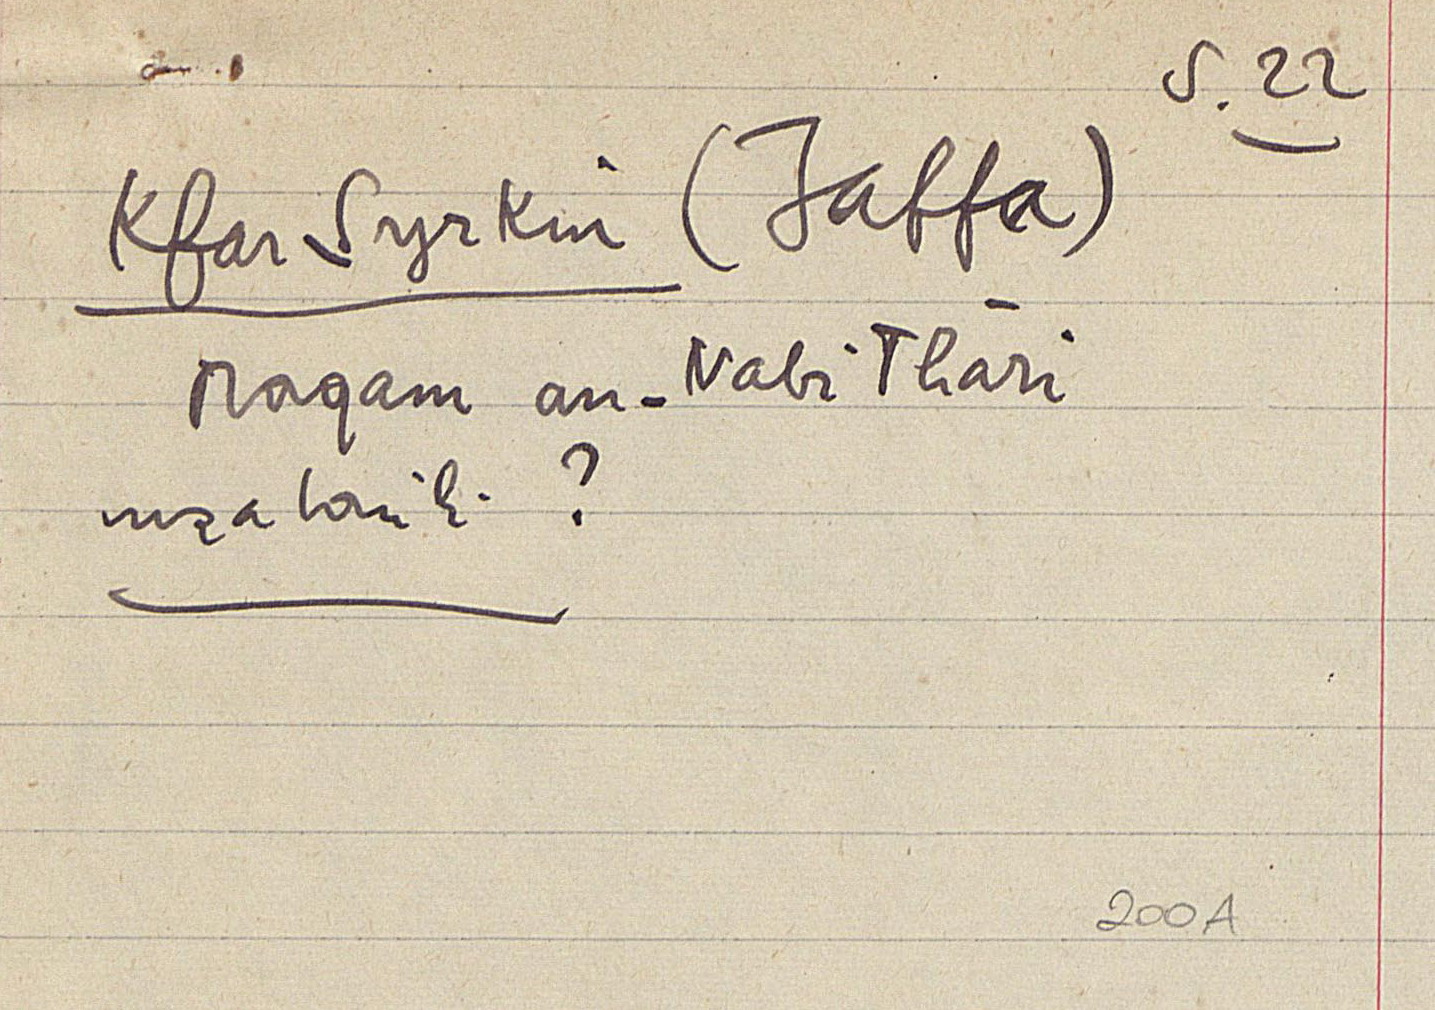 S. 22
Kfar Syrkin (Jaffa)
Maqam an-Nabi Thāri
?
200A